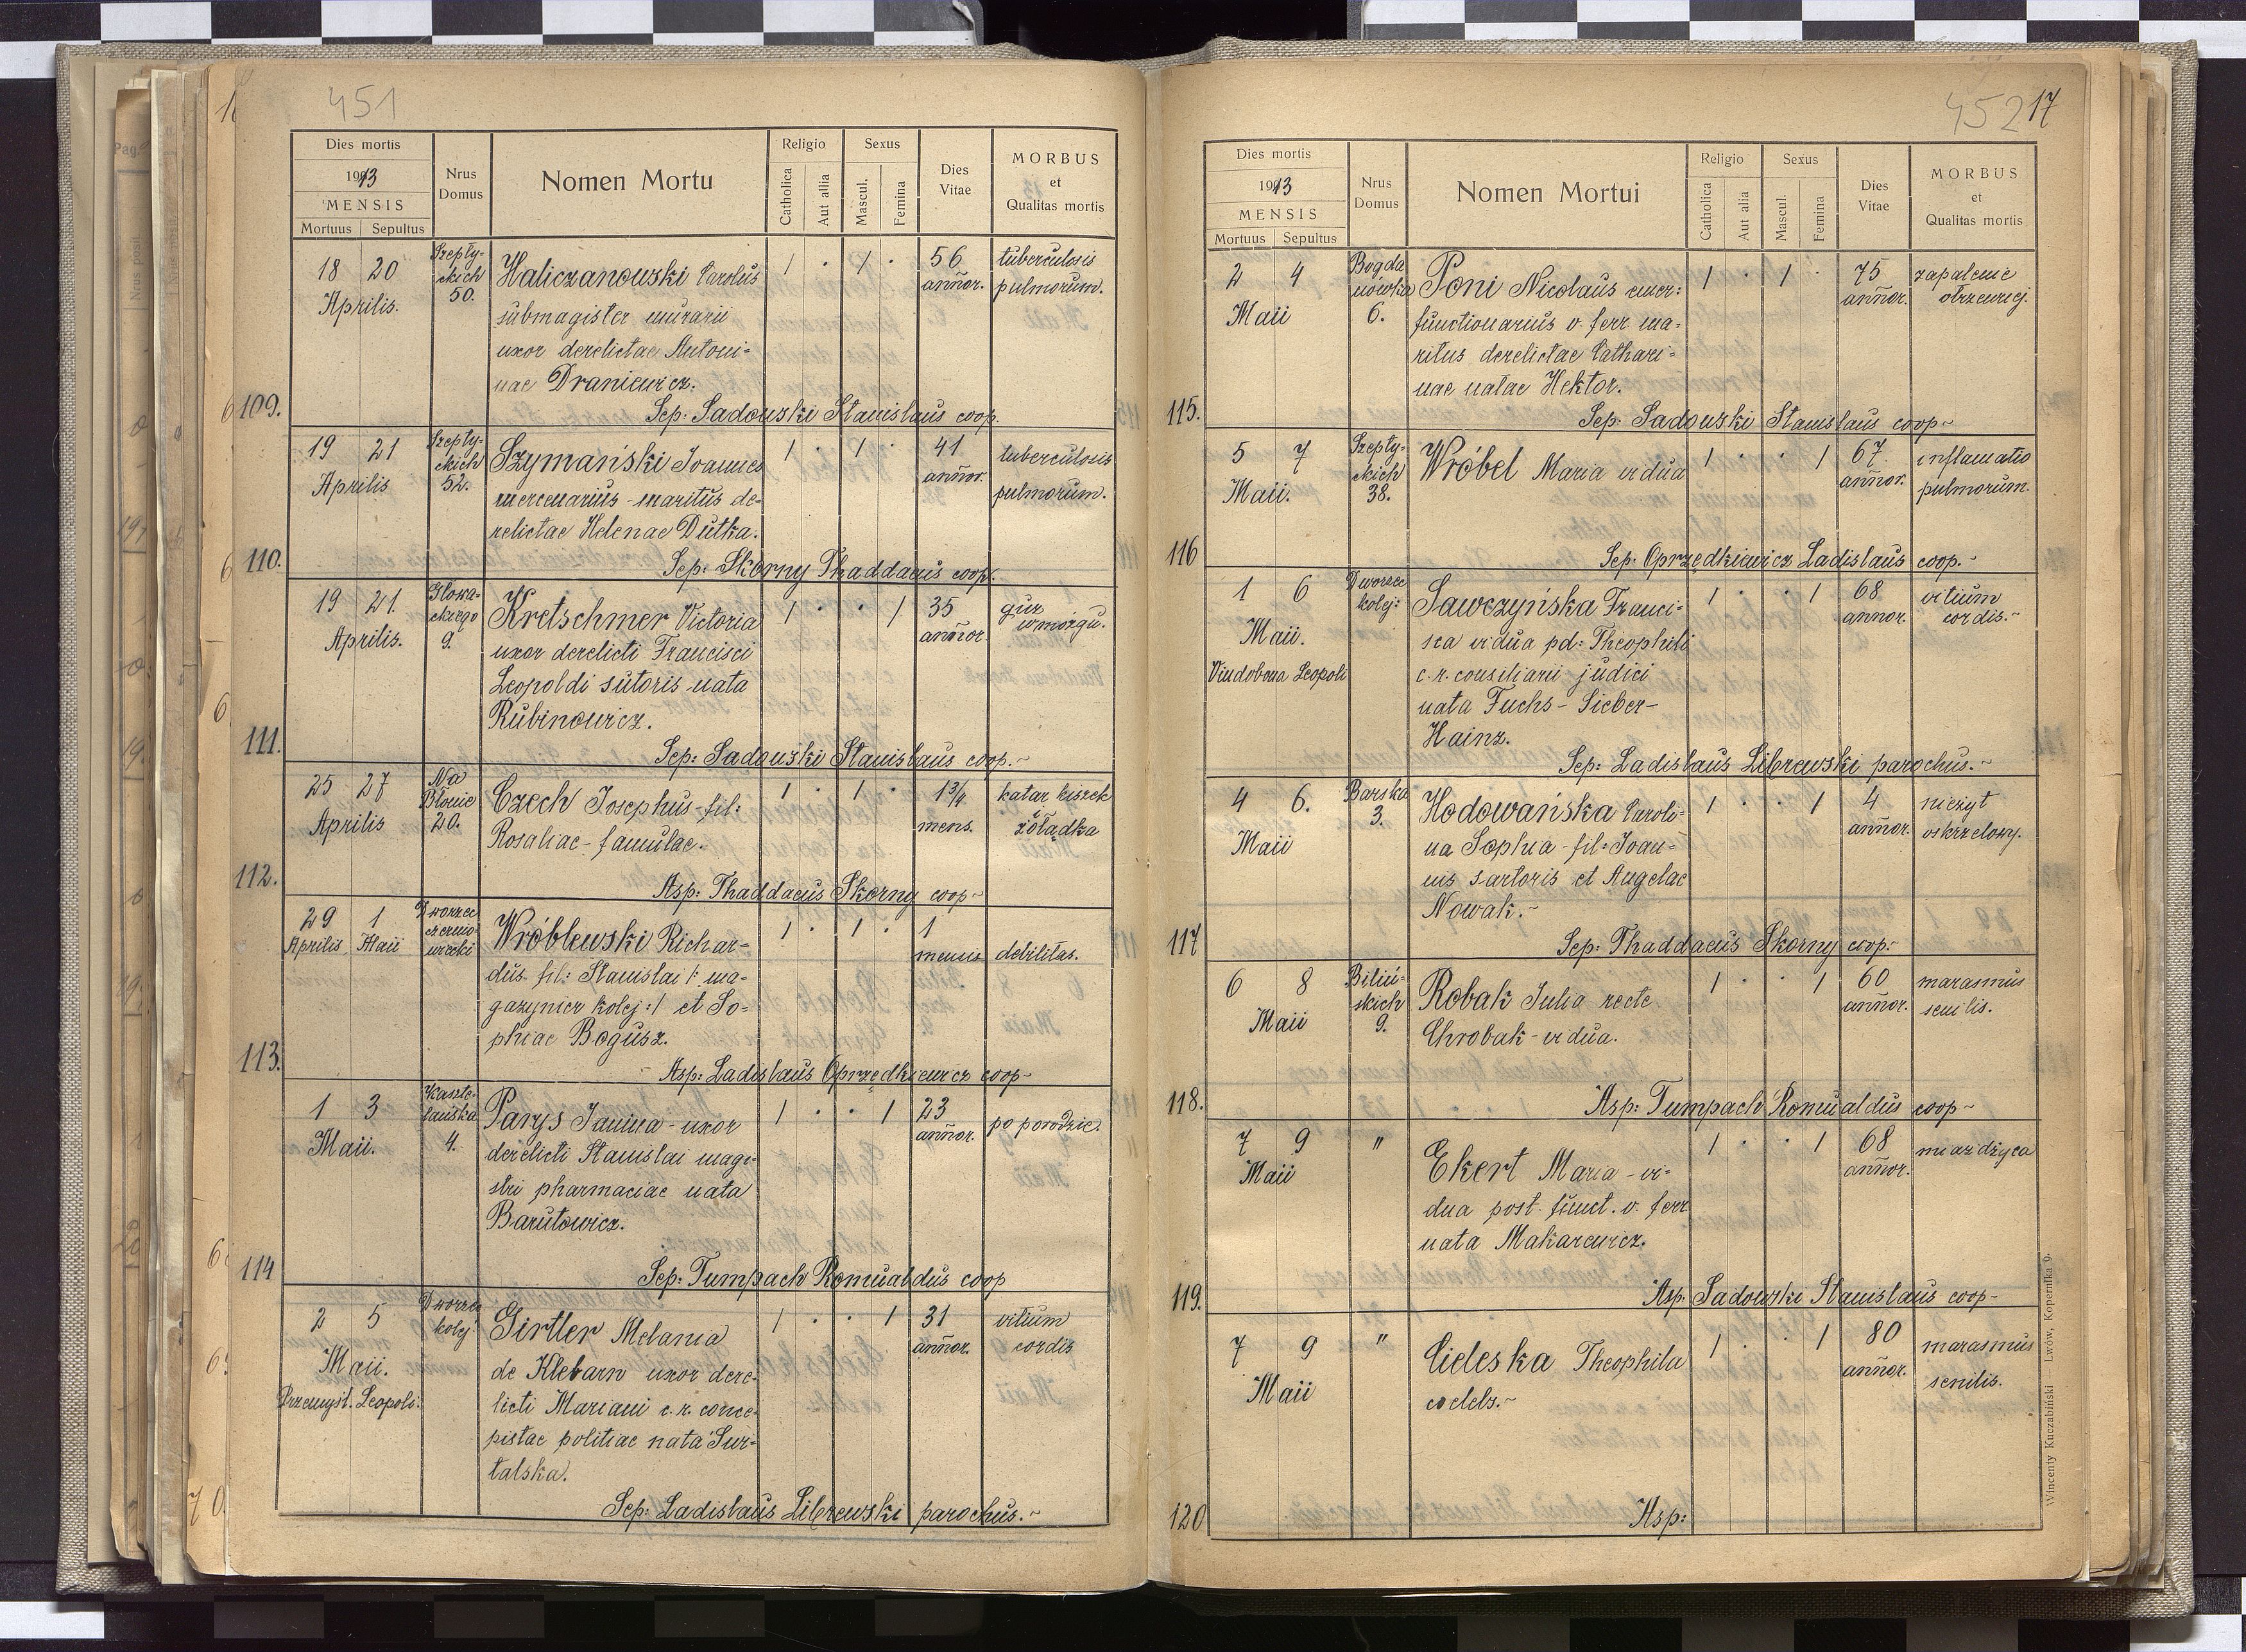 451
Dies mortis
1913
MENSIS
Mortuus Sepultus
Nrus Domus
Nomen Mortu
Religio
Catholica
Aut allia
Sexus
Mascul.
Femina
Dies Vitae
MORBUS
et
Qualitas mortis
18 20 Szepty- Haliczanowski Carolus 1 . 1 . 56 tuberculosis
Aprilis. ckich submagister murarii annor. pulmorum.
50. uxor derelictae Antoni-
nae Draniewicz.
109. Sep: Sadowski Stanislaus coop.
19 21 Szepty- Szymański Joannes 1 . 1 . 41 tuberculosis
Aprilis ckich mercenarius - maritus de- annor. pulmorum.
52. relictae Helenae Dutka.
110. Sep: Skorny Thaddaeus coop.
19 21. Głowa- Kretschmer Victoria 1 . . 1 35 guz
Aprilis. ckiego uxor derelicti Francisci annor w mózgu.
9. Leopoldi sutoris nata
Rubinowicz.
111. Sep: Sadowski Stanislaus coop.~
25 27 Na Czech Josephus - fil: 1 . 1 . 1 3/4 katar kiszek
Aprilis Błonie Rosaliae - famulae. mens. żołądka
20.
112. Asp: Thaddaeus Skorny coop~
29 1 Dworzec Wróblewski Richar- 1 . 1 . 1
Aprilis Maii czernio- dus fil: Stanislai /: ma- mensis debilitas.
wiecki gazynier kolej :/ et So-
phiae Bogusz.
113. Asp: Ladislaus Oprzędkiewicz coop~
1 3 Kaszte- Parys Janina - uxor 1 . . 1 23 po porodzie.
Maii. lańska derelicti Stanislai magi- annor.
4. stri pharmaciae nata
Barutowicz.
114 Sep: Tumpach Romualdus coop
2 5 Dworzec Girtler Melania 1 . . 1 31 vitium
Maii. kolej: de Klebarn uxor dere- annor. cordis
Przemyśl. Leopoli: licti Mariani c. r. conce-
pistae politiae nata Sur-
talska.
Sep: Ladislaus Librewski parochus.~
452 17
Dies mortis
1913
MENSIS
Mortuus Sepultus
Nrus Domus
Nomen Mortui
Religio
Catholica
Aut alia
Sexus
Mascul.
Femina
Dies Vitae
MORBUS
et
Qualitas mortis
2 4 Bogda Poni Nicolaus emer: 1 . 1 . 75 zapalenie
Maii nówka functionarius v. ferr ma- annor. otrzewnej.
6. ritus derelictae Cathari-
nae natae Hektor.
115. Sep: Sadowski Stanislaus coop~
5 7 Szepty- Wróbel Maria vidua 1 . . 1 67 inflamatio
Maii. ckich annor. pulmorum.
38.
116 Sep: Oprzędkiewicz Ladislaus coop.~
1 6 Dworzec Sawczyńska Franci- 1 . . 1 68 vitium
Maii. kolej: sca vidua pd: Theophili annor. cordis.~
Vindobona Leopoli c. r. consiliarii judici
nata Fuchs - Sieber -
Hainz.
Sep: Ladislaus Librewski parochus.~
4 6. Barska Hodowańska Caroli- 1 . . 1 4 nieżyt
Maii 3. na Sophia - fil: Joan- annor. oskrzelowy.
nis sartoris et Angelae
Nowak.~
117 Sep: Thaddaeus Skorny coop.~
6 8 Biliń- Robak Julia recte 1 . . 1 60 marasmus
Maii skich Chrobak - vidua. annor. senilis.
9.
118. Asp: Tumpach Romualdus coop~
7 9 " Ekert Maria - vi- 1 . . 1 68 miażdżyca
Maii dua post. funct. v. ferr annor.
nata Makarewicz.
119. Asp. Sadowski Stanislaus coop~
7 9 " Cideska Theophila 1 . . 1 80 marasmus
Maii coelebs.~ annor. senilis.
120 Asp:
Wincenty Kuczabiński — Lwów, Kopernika 9.